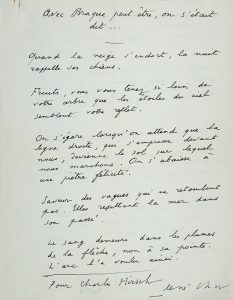 Avec Braque peut être, on s'était
dit ...
Quand la neige s'endort, la nuit
rappelle ses chiens.
Fruits, vous vous tenez si loin de
votre arbre que les étoiles du ciel
semblent votre reflet.
On s'égare lorsque l'on attend que la
ligne droite, qui s'empresse devant
nous, devienne le sol sur lequel
nous marchons. On s'abaisse à
une piètre félicité.
Saveur des vagues qui ne retombent
pas. Elles rejettent la mer dans
son passé.
Le sang demeure dans les plumes
de la flèche, non à sa pointe.
L'arc l'a voulu ainsi.
Pour Charles Hirsch
René Char